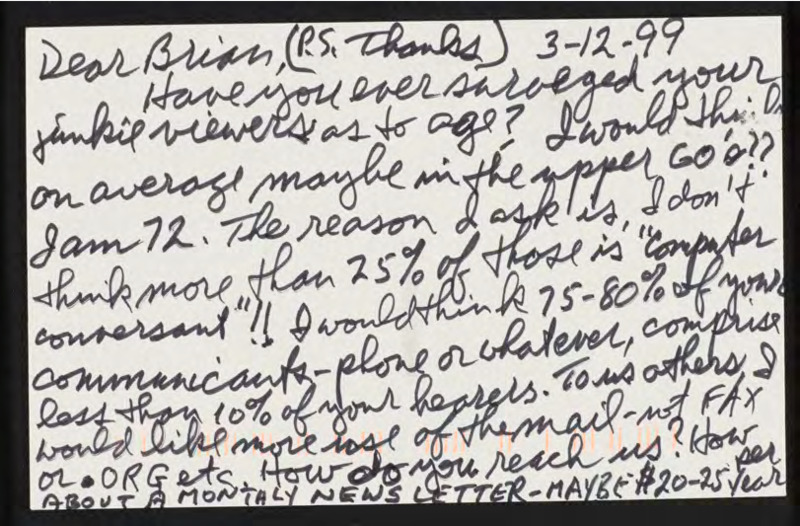 Dear Brian, (P.S. Thanks) 3-12-99
Have you ever surveyed your
junkie viewers as to age? I would think
on average maybe in the upper 60's??
I am 72. The reason I ask is, I don't
think more than 25% of those is "computer
conversant"!! I would think 75-80% of your
communicants-phone or whatever, comprise
less than 10% of your hearers. To us others I
would like more use of the mail-not FAX
or .ORG etc. How do you reach us? How
ABOUT A MONTHLY NEWS LETTER-MAYBE $20-25 per year